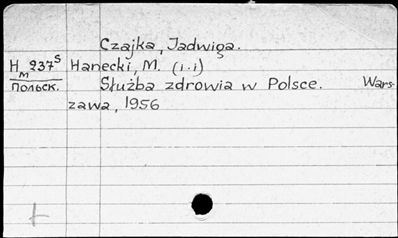 Czajka, Jadwiga.
Н 237⁵ Hanecki, M. (i.i)
м
Польск. Służba zdrowia w Polsce. Wars-
zawa, 1956